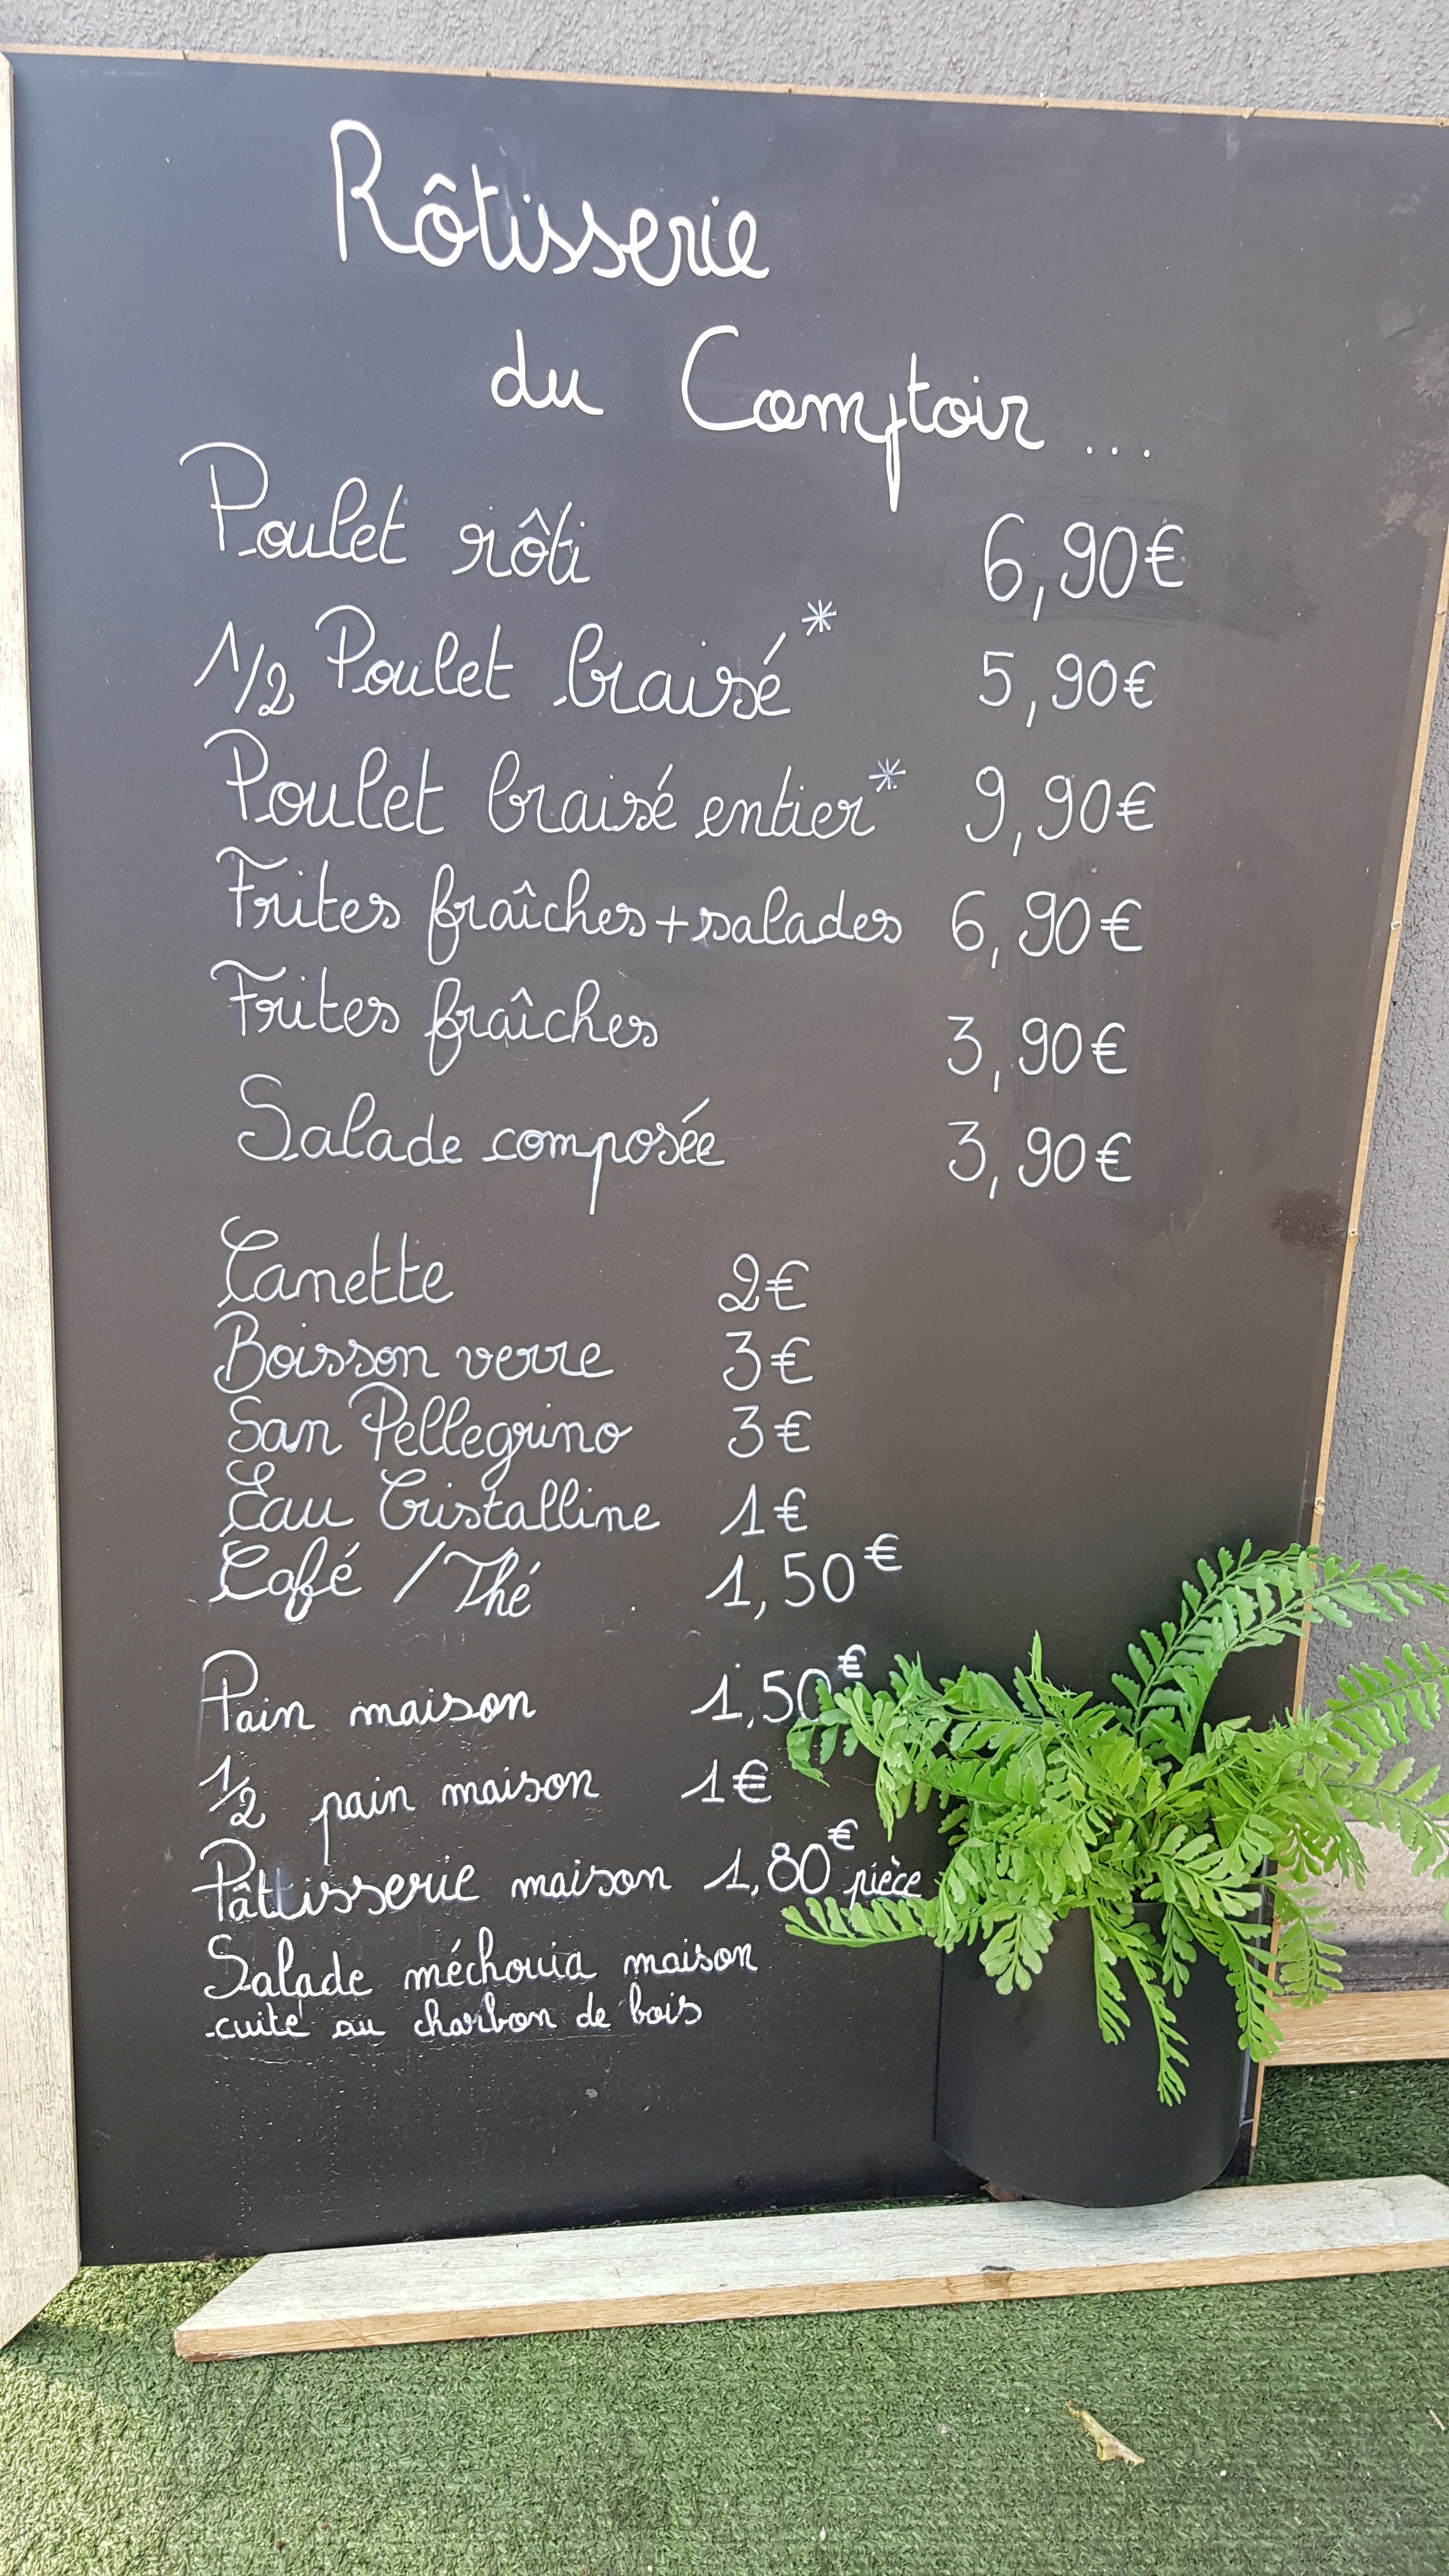 Rôtisserie
du Comptoir ...
Poulet rôti 6,90€
1/2 Poulet braisé* 5,90€
Poulet braisé entier* 9,90€
Frites fraîches+salades 6,90€
Frites fraîches 3,90€
Salade composée 3,90€
Canette 2€
Boisson verre 3€
San Pellegrino 3€
Eau Cristalline 1€
Café / Thé 1,50€
Pain maison 1,50€
1/2 pain maison 1€
Pâttisserie maison 1,80€ pièce
Salade méchouia maison
cuite au charbon de bois